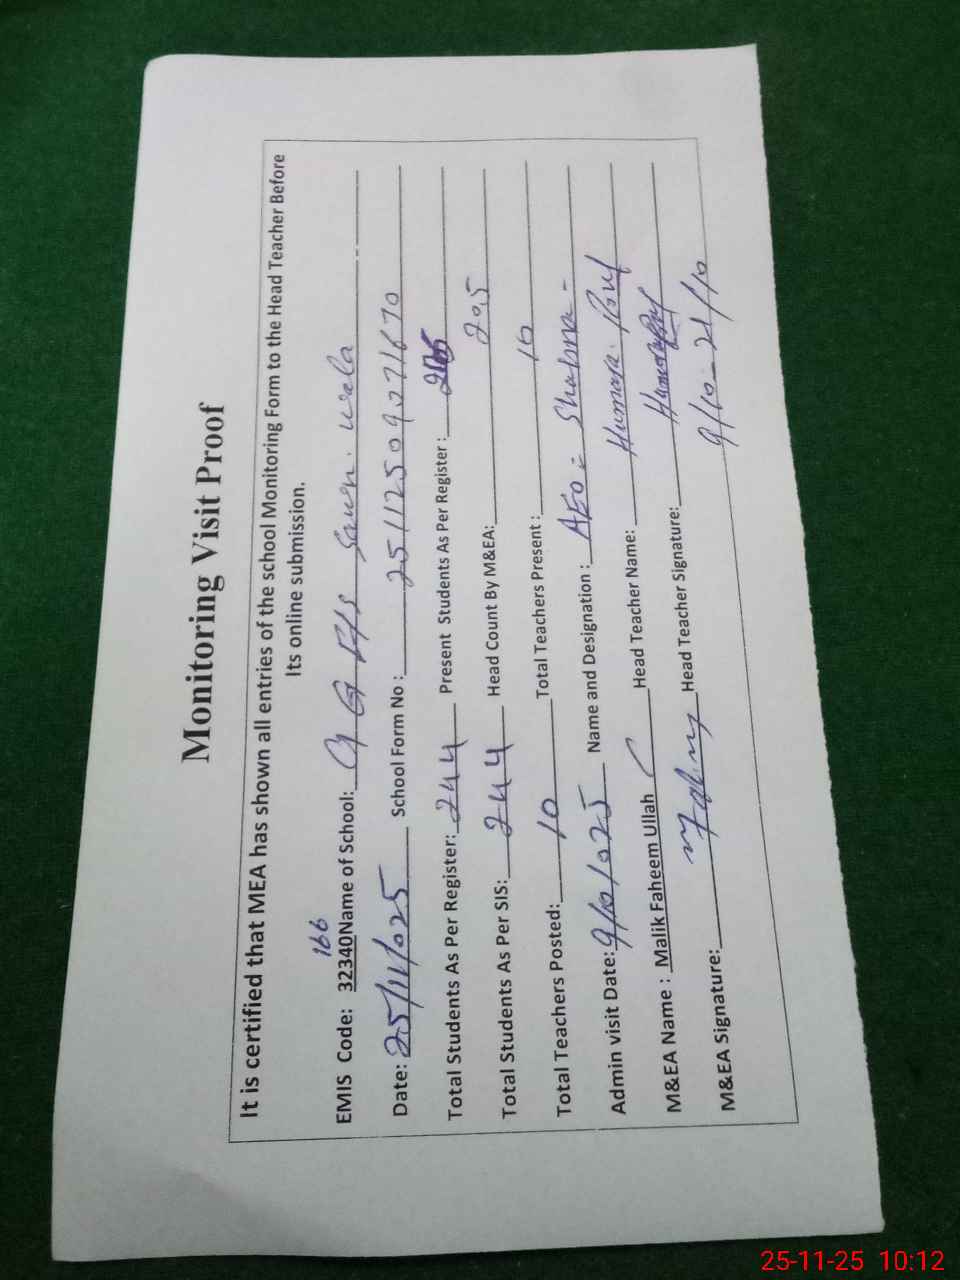 Monitoring Visit Proof
It is certified that MEA has shown all entries of the school Monitoring Form to the Head Teacher Before
Its online submission.
166
EMIS Code: 32340 Name of School: wala
Date: 25/11/025 School Form No : 25112509071670
Total Students As Per Register: 244 Present Students As Per Register :
Total Students As Per SIS: 244 Head Count By M&EA: 205
Total Teachers Posted: 10 Total Teachers Present : 10
Admin visit Date: 9/10/025 Name and Designation : AEO = Shabna -
M&EA Name : Malik Faheem Ullah Head Teacher Name: Humara
M&EA Signature: Head Teacher Signature:
9/10 - 21/10
25-11-25 10:12